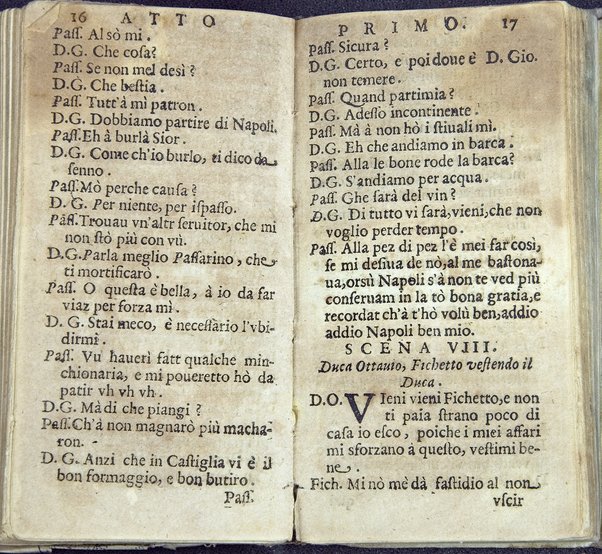 16 ATTO
Paſſ. Al sò mi.
D.G. Che coſa?
Paſſ. Se non mel desì?
D.G. Che beſtia.
Paſſ. Tutt'à mi patron.
D.G. Dobbiamo partire di Napoli.
Paſſ. Eh à burlà Sior.
D.G. Come ch'io burlo, ti dico da
ſenno.
Paſſ. Mò perche cauſa?
D. G. Per niente, per iſpaſſo.
Paſſ. Trouau vn'altr ſeruitor, che mi
non ſtò più con vù.
D.G. Parla meglio Paſſarino, che
ti mortificarò.
Paſſ. O queſta è bella, à io da far
viaz per forza mì.
D. G. Stai meco, è neceſſario l'vbi-
dirmi.
Paſſ. Vu hauerì fatt qualche min-
chionaria, e mi poueretto hò da
patir vh vh vh.
D.G. Mà di che piangi?
Paſſ. Ch'à non magnarò più macha-
ron.
D. G. Anzi che in Caſtiglia vi è il
bon formaggio, e bon butiro.
Paſſ.
PRIMO. 17
Paſſ. Sicura?
D.G. Certo, e poi doue è D. Gio.
non temere.
Paſſ. Quand partimia?
D.G. Adeſſo incontinente.
Paſſ. Mà à non hò i ſtiuali mì.
D.G. Eh che andiamo in barca.
Paſſ. Alla le bone rode la barca?
D.G. S'andiamo per acqua.
Paſſ. Ghe ſarà del vin?
D.G. Di tutto vi ſarà, vieni, che non
voglio perder tempo.
Paſſ. Alla pez di pez l'è mei far così,
ſe mi desiua de nò, al me baſtona-
ua, orsù Napoli s'à non te ved più
conſeruam in la tò bona gratia, e
recordat ch'à t'hò volù ben, addio
addio Napoli ben mio.
SCENA VIII.
Duca Ottauio, Fichetto veſtendo il
Duca.
D.O. VIeni vieni Fichetto, e non
ti paia ſtrano poco di
caſa io eſco, poiche i miei affari
mi sforzano à queſto, veſtimi be-
ne.
Fich. Mi nò me dà faſtidio al non
vſcir